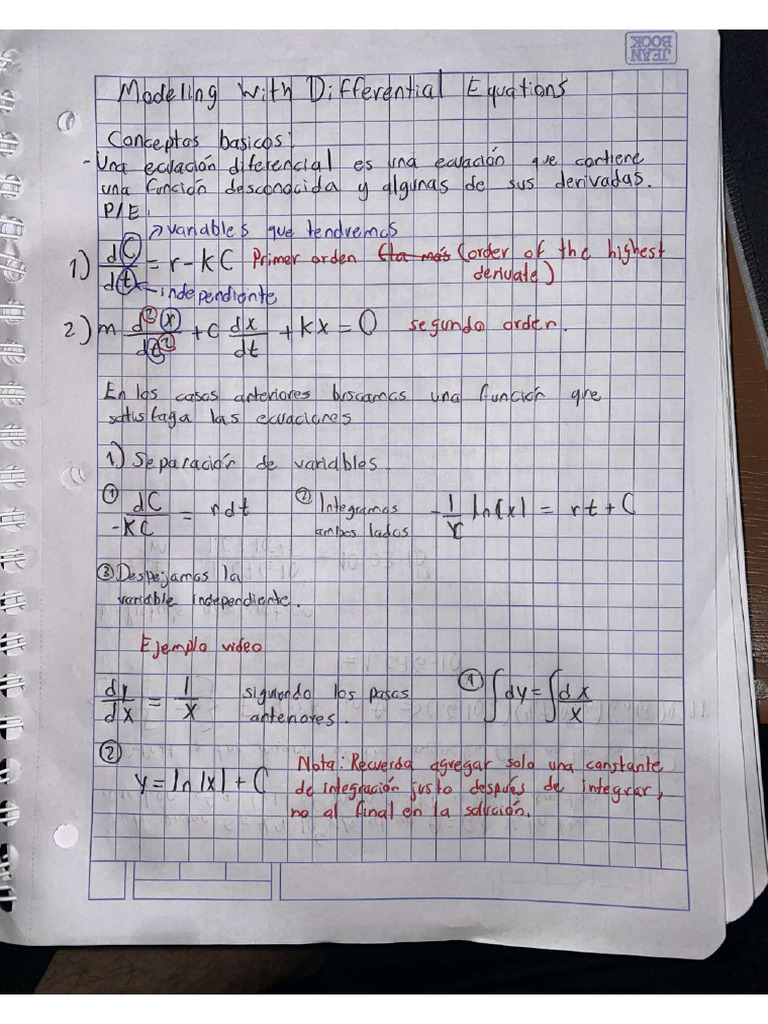 JEAN BOOK
Modeling with Differential Equations
Conceptos basicos:
- Una ecuación diferencial es una ecuación que contiene
una función desconocida y algunas de sus derivadas.
P/E:
variables que tendremos
1) dC/dt = r - kC Primer orden (order of the highest
derivate)
independiente
2) m d²x/dt² + c dx/dt + kx = 0 segundo orden.
En los casos anteriores buscamos una función que
satisfaga las ecuaciones
1) Separación de variables.
① dC/-KC = rdt ② Integramos ambos lados -1/r ln|x| = rt + C
③ Despejamos la
variable independiente.
Ejemplo video
dy/dx = 1/x siguiendo los pasos anteriores. ① ∫dy = ∫dx/x
②
y = ln|x| + C
Nota: Recuerda agregar solo una constante
de integración justo después de integrar,
no al final en la solución.